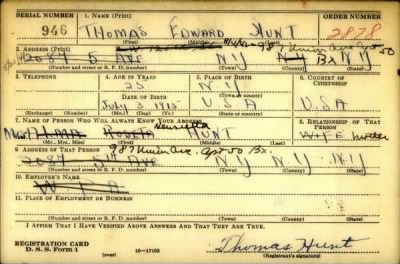 SERIAL NUMBER 1. NAME (Print) ORDER NUMBER
946 THOMAS EDWARD HUNT 2878
(First) (Middle) (Last)
2. ADDRESS (Print) 987 Union Ave Apt 50
2087 5 AVE NY NY Bx NY
(Number and street or R. F. D. number) (Town) (County) (State)
3. TELEPHONE 4. AGE IN YEARS 5. PLACE OF BIRTH 6. COUNTRY OF CITIZENSHIP
25 NY
DATE OF BIRTH
July 1915 USA USA
(Exchange) (Number) (Mo.) (Day) (Yr.) (State or country)
7. NAME OF PERSON WHO WILL ALWAYS KNOW YOUR ADDRESS 8. RELATIONSHIP OF THAT PERSON
Henrietta
Mrs ALMA HUNT WIFE mother
(Mr., Mrs., Miss) (First) (Middle) (Last)
9. ADDRESS OF THAT PERSON 987 Union Ave. Apt 50 Bx.
2087 5th AVE NY NY NY
(Number and street or R. F. D. number) (Town) (County) (State)
10. EMPLOYER'S NAME
W P A
11. PLACE OF EMPLOYMENT OR BUSINESS
(Number and street or R. F. D. number) (Town) (County) (State)
I AFFIRM THAT I HAVE VERIFIED ABOVE ANSWERS AND THAT THEY ARE TRUE.
REGISTRATION CARD Thomas Hunt
D. S. S. Form 1 (over) 16—17105 (Registrant's signature)